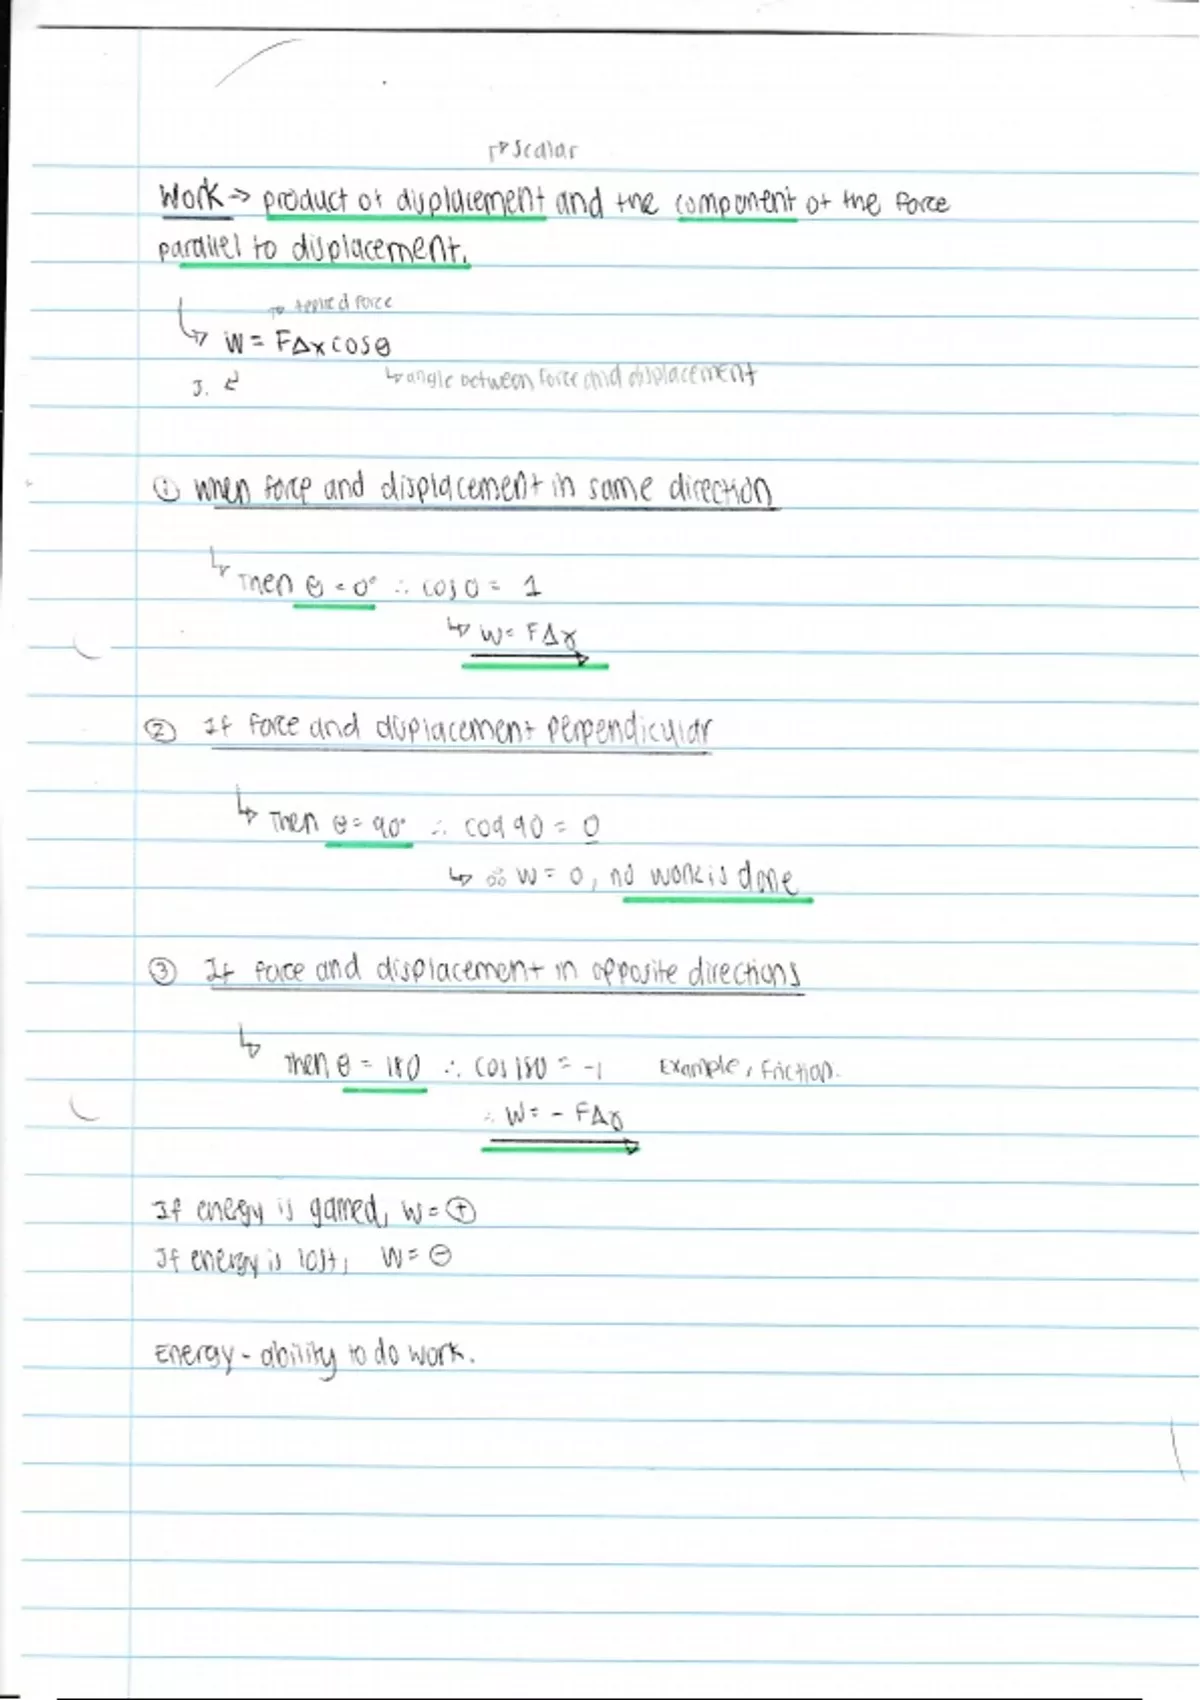 ↱ Scalar
Work → product of displacement and the component of the force
parallel to displacement.
→ applied force
↳ W = FΔxcosθ
J. ↲ ↳ angle between force and displacement
① When force and displacement in same direction
↳ Then θ = 0° ∴ cos 0 = 1
↳ W = FΔx
② If force and displacement perpendicular
↳ Then θ = 90° ∴ cos 90 = 0
↳ ∴ W = 0, no work is done
③ If force and displacement in opposite directions
↳ Then θ = 180 ∴ cos 180 = -1 Example, friction.
∴ W = - FΔx
If energy is gained, W = ⊕
If energy is lost, W = ⊖
Energy - ability to do work.